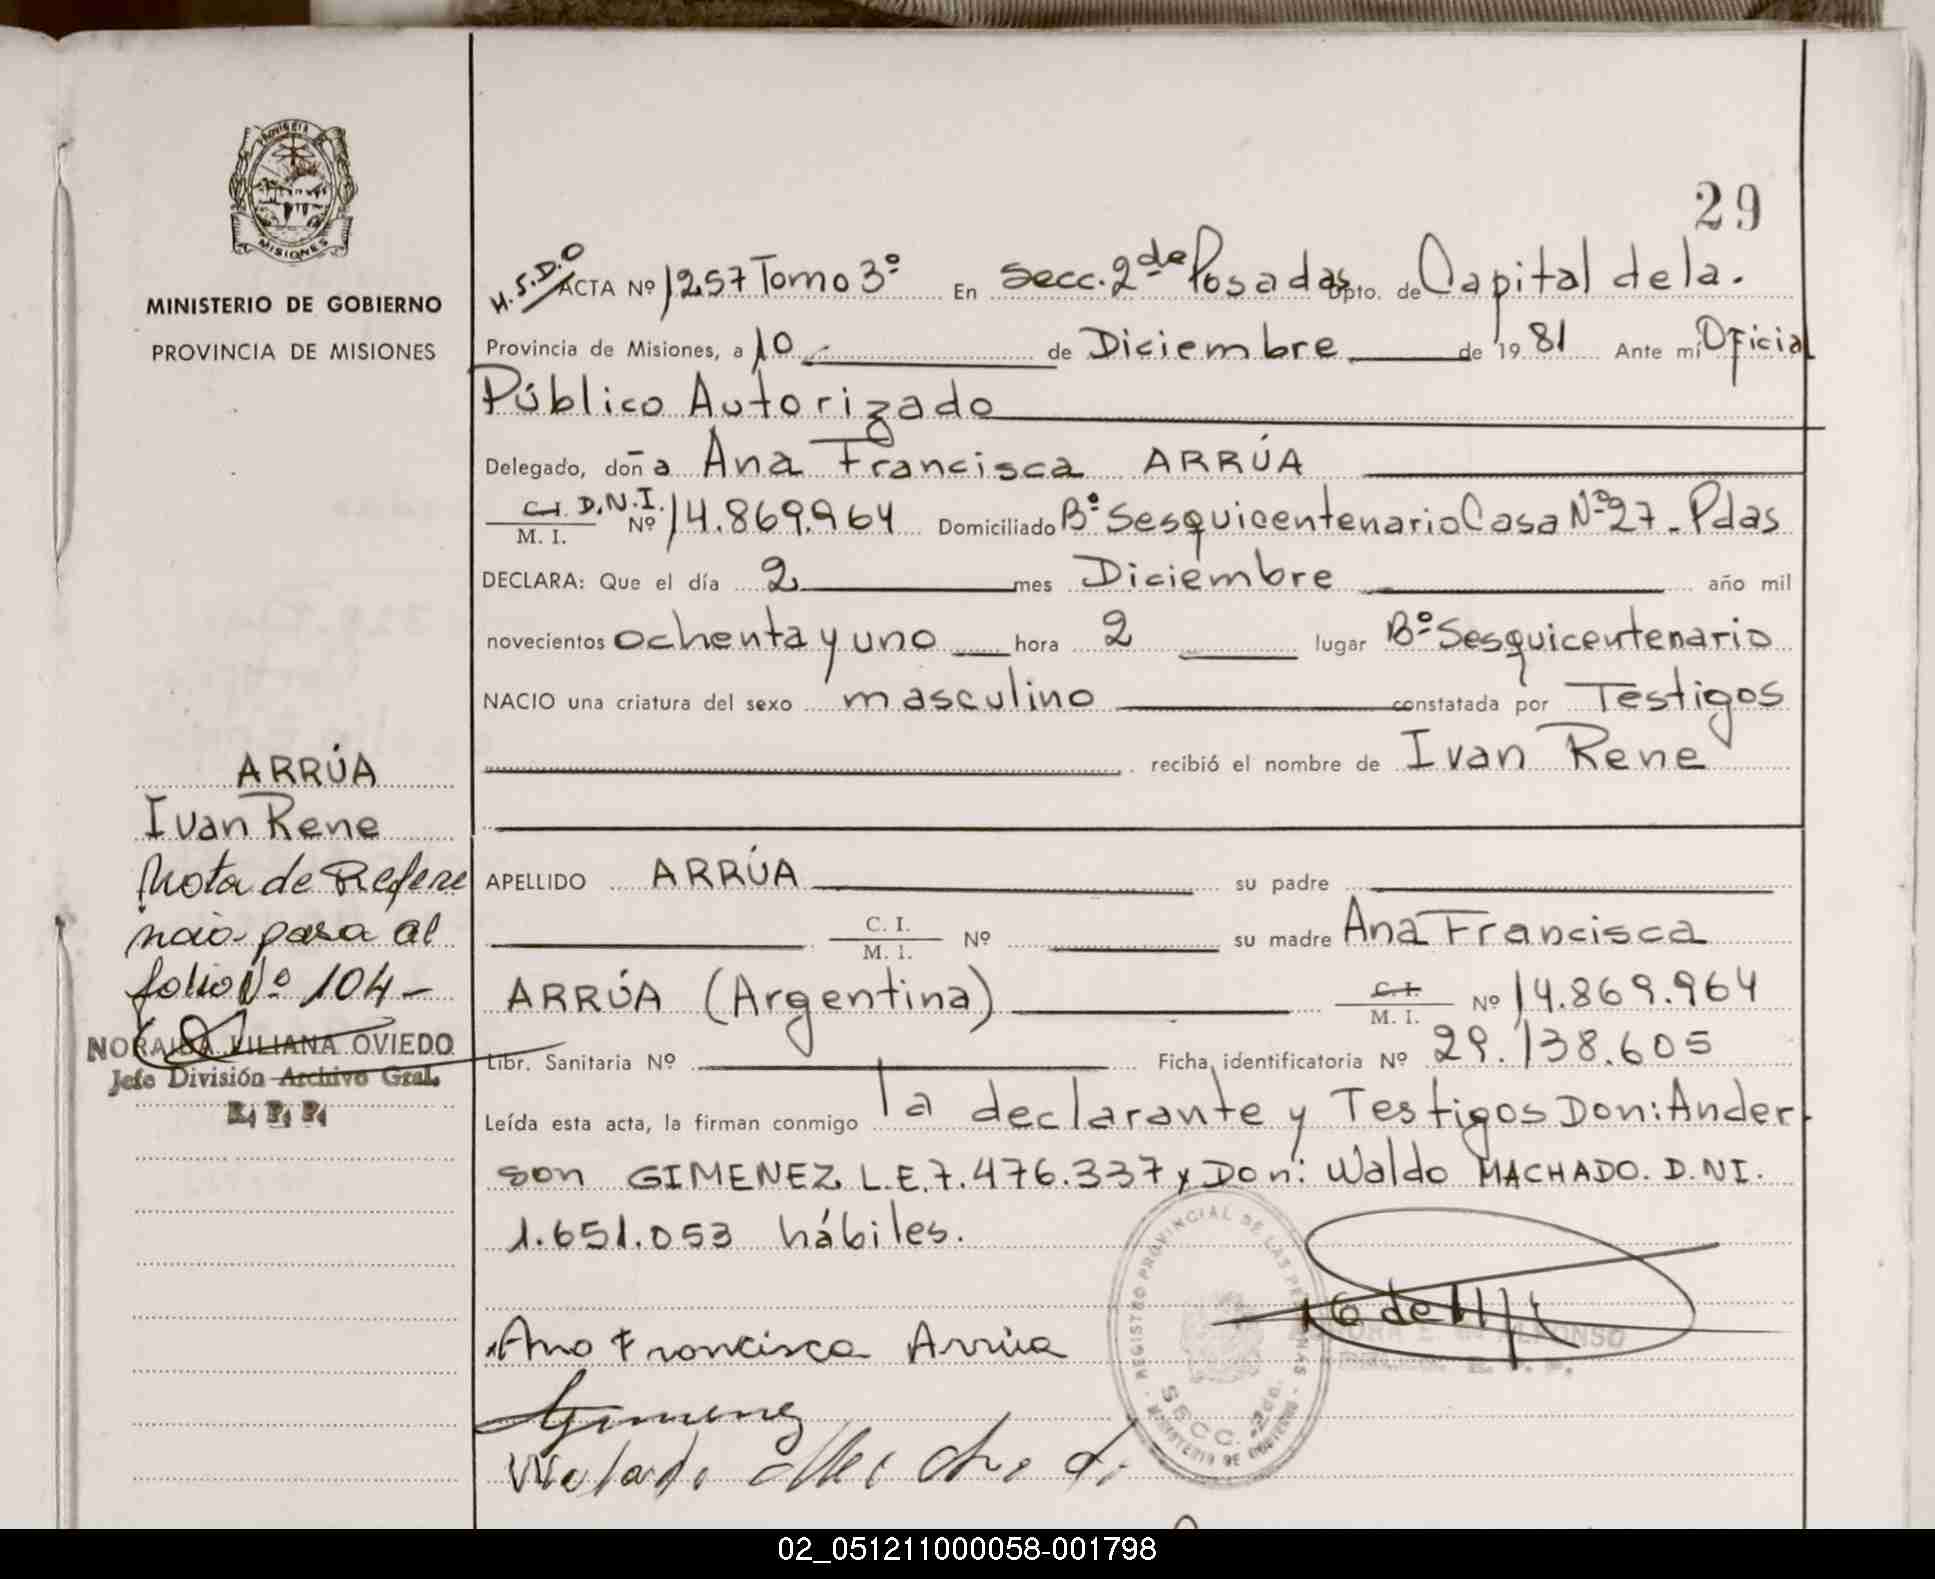 29
PROVINCIA
MISIONES
MINISTERIO DE GOBIERNO
PROVINCIA DE MISIONES
H.S.D.O
ACTA Nº 1257 Tomo 3º En Secc. 2da Posadas Dpto. de Capital de la.
Provincia de Misiones, a 10 de Diciembre de 1981 Ante mí Oficial
Público Autorizado
Delegado, doña Ana Francisca ARRÚA
C.I. D.N.I.
M. I. Nº 14.869.964 Domiciliado Bº Sesquicentenario Casa Nº 27 - Pdas
DECLARA: Que el día 2 mes Diciembre año mil
novecientos ochenta y uno hora 2 lugar Bº Sesquicentenario
NACIO una criatura del sexo masculino constatada por Testigos
recibió el nombre de Ivan Rene
ARRÚA
Ivan Rene
Nota de Refere
para al
folio Nº 104 -
NORAIDA LILIANA OVIEDO
Jefe División Archivo Gral.
R. P. P.
APELLIDO ARRÚA su padre
C. I.
M. I. Nº su madre Ana Francisca
ARRÚA (Argentina) C. I.
M. I. Nº 14.869.964
Libr. Sanitaria Nº Ficha identificatoria Nº 29.138.605
Leída esta acta, la firman conmigo la declarante y Testigos Don: Ander-
son GIMENEZ L.E. 7.476.337 y Don: Waldo MACHADO. D.NI.
1.651.053 hábiles.
Ana Francisca Arrúa
Gimenez
REGISTRO PROVINCIAL DE LAS PERSONAS
SECC. 2da.
MINISTERIO DE GOBIERNO
ALFONSO
02_051211000058-001798